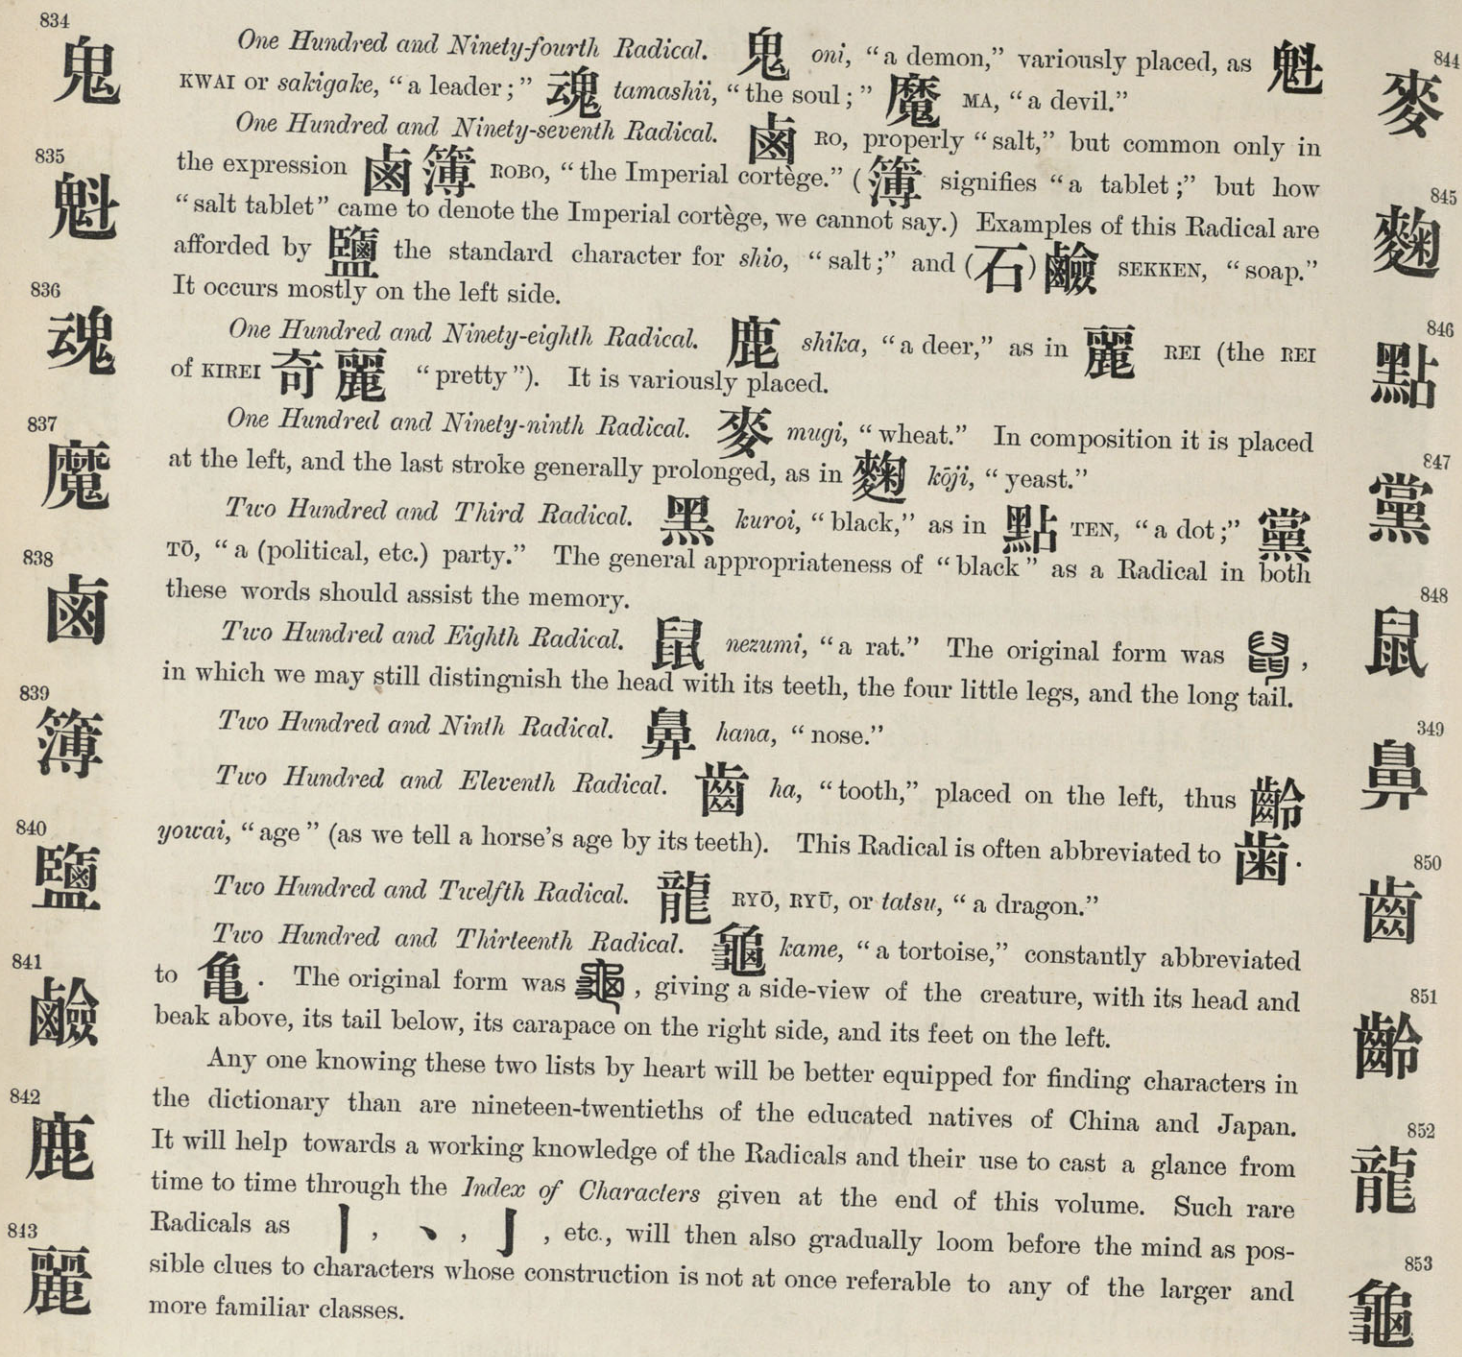 834
鬼
835
魁
836
魂
837
魔
838
鹵
839
簿
840
鹽
841
鹼
842
鹿
843
麗
One Hundred and Ninety-fourth Radical. 鬼 oni, “a demon,” variously placed, as 魁
KWAI or sakigake, “a leader;” 魂 tamashii, “the soul;” 魔 MA, “a devil.”
One Hundred and Ninety-seventh Radical. 鹵 RO, properly “salt,” but common only in
the expression 鹵簿 ROBO, “the Imperial cortège.” (簿 signifies “a tablet;” but how
“salt tablet” came to denote the Imperial cortège, we cannot say.) Examples of this Radical are
afforded by 鹽 the standard character for shio, “salt;” and (石)鹼 SEKKEN, “soap.”
It occurs mostly on the left side.
One Hundred and Ninety-eighth Radical. 鹿 shika, “a deer,” as in 麗 REI (the REI
of KIREI 奇麗 “pretty”). It is variously placed.
One Hundred and Ninety-ninth Radical. 麥 mugi, “wheat.” In composition it is placed
at the left, and the last stroke generally prolonged, as in 麴 kōji, “yeast.”
Two Hundred and Third Radical. 黑 kuroi, “black,” as in 點 TEN, “a dot;” 黨
TŌ, “a (political, etc.) party.” The general appropriateness of “black” as a Radical in both
these words should assist the memory.
Two Hundred and Eighth Radical. 鼠 nezumi, “a rat.” The original form was ,
in which we may still distingnish the head with its teeth, the four little legs, and the long tail.
Two Hundred and Ninth Radical. 鼻 hana, “nose.”
Two Hundred and Eleventh Radical. 齒 ha, “tooth,” placed on the left, thus 齡
yowai, “age” (as we tell a horse’s age by its teeth). This Radical is often abbreviated to 歯.
Two Hundred and Twelfth Radical. 龍 RYŌ, RYŪ, or tatsu, “a dragon.”
Two Hundred and Thirteenth Radical. 龜 kame, “a tortoise,” constantly abbreviated
to 亀. The original form was , giving a side-view of the creature, with its head and
beak above, its tail below, its carapace on the right side, and its feet on the left.
Any one knowing these two lists by heart will be better equipped for finding characters in
the dictionary than are nineteen-twentieths of the educated natives of China and Japan.
It will help towards a working knowledge of the Radicals and their use to cast a glance from
time to time through the Index of Characters given at the end of this volume. Such rare
Radicals as 丨, 丶, 亅, etc., will then also gradually loom before the mind as pos-
sible clues to characters whose construction is not at once referable to any of the larger and
more familiar classes.
844
麥
845
麴
846
點
847
黨
848
鼠
349
鼻
850
齒
851
齡
852
龍
853
龜